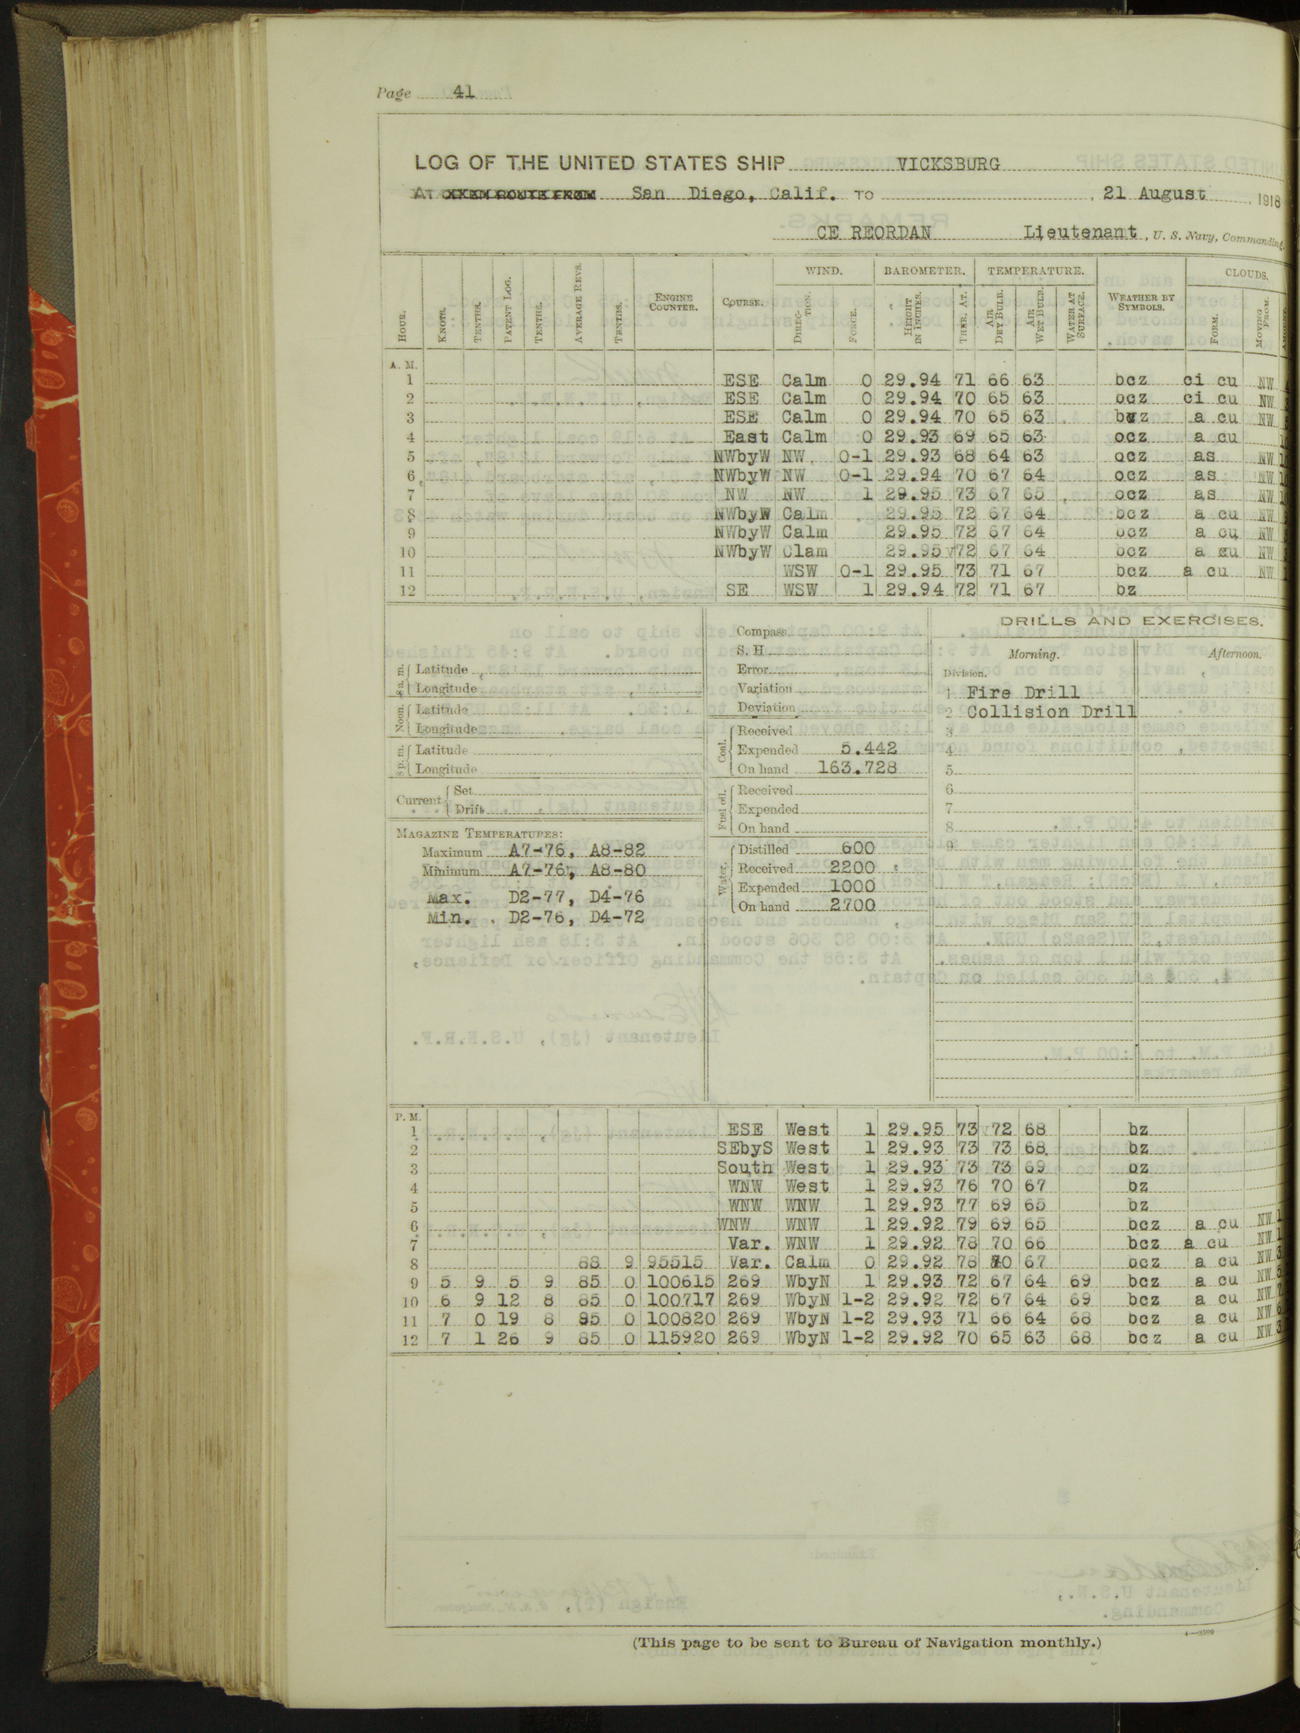 Page 41
LOG OF THE UNITED STATES SHIP VICKSBURG
At San Diego, Calif. TO , 21 August , 1918
CE REORDAN Lieutenant , U. S. Navy, Commanding.
WIND. BAROMETER. TEMPERATURE. CLOUDS.
HOUR. KNOTS. TENTHS. PATENT LOG. TENTHS. AVERAGE REVS. TENTHS. ENGINE COUNTER. COURSE. DIREC-TION. FORCE. HEIGHT IN INCHES. THER. AT. AIR DRY BULB. AIR WET BULB. WATER AT SURFACE. WEATHER BY SYMBOLS. FORM. MOVING FROM.
A. M.
1 ESE Calm 0 29.94 71 66 63 bcz ci cu NW
2 ESE Calm 0 29.94 70 65 63 ocz ci cu NW
3 ESE Calm 0 29.94 70 65 63 a cu NW
4 East Calm 0 29.93 69 65 63 ocz a cu
5 NWbyW NW 0-1 29.93 68 64 63 ocz as NW
6 NWbyW NW 0-1 29.94 70 67 64 ocz as NW
7 NW NW 1 29.95 73 67 65 ocz as NW
8 NWbyW Calm 29.95 72 67 64 bcz a cu NW
9 NWbyW Calm 29.95 72 67 64 bcz a cu NW
10 NWbyW Clam 29.95 72 67 64 bcz a cu NW
11 WSW 0-1 29.95 73 71 67 bcz a cu NW
12 SE WSW 1 29.94 72 71 67 bz
8 a. m. Latitude
Longitude
Noon. Latitude
Longitude
8 p. m. Latitude
Longitude
Current Set
Drift
MAGAZINE TEMPERATURES:
Maximum A7-76, A8-82
Minimum A7-76, A8-80
Max. D2-77, D4-76
Min. D2-76, D4-72
Compass
S. H.
Error
Variation
Deviation
Coal. Received
Expended 5.442
On hand 163.728
Fuel oil. Received
Expended
On hand
Water. Distilled 600
Received 2200
Expended 1000
On hand 2700
DRILLS AND EXERCISES.
Morning. Afternoon.
Division.
1 Fire Drill
2 Collision Drill
3
4
5
6
7
8
9
P. M.
1 ESE West 1 29.95 73 72 68 bz
2 SEbyS West 1 29.93 73 73 68 bz
3 South West 1 29.93 73 73 69 oz
4 WNW West 1 29.93 76 70 67 bz
5 WNW WNW 1 29.93 77 69 65 bz
6 WNW WNW 1 29.92 79 69 65 bcz a cu NW
7 Var. WNW 1 29.92 78 70 66 bcz a cu NW
8 88 9 95515 Var. Calm 0 29.92 76 70 67 ocz a cu NW
9 5 9 5 9 85 0 100615 269 WbyN 1 29.93 72 67 64 69 bcz a cu NW
10 6 9 12 8 85 0 100717 269 WbyN 1-2 29.92 72 67 64 69 bcz a cu NW
11 7 0 19 8 85 0 100820 269 WbyN 1-2 29.93 71 66 64 68 bcz a cu NW
12 7 1 26 9 85 0 115920 269 WbyN 1-2 29.92 70 65 63 68 bcz a cu NW
(This page to be sent to Bureau of Navigation monthly.)